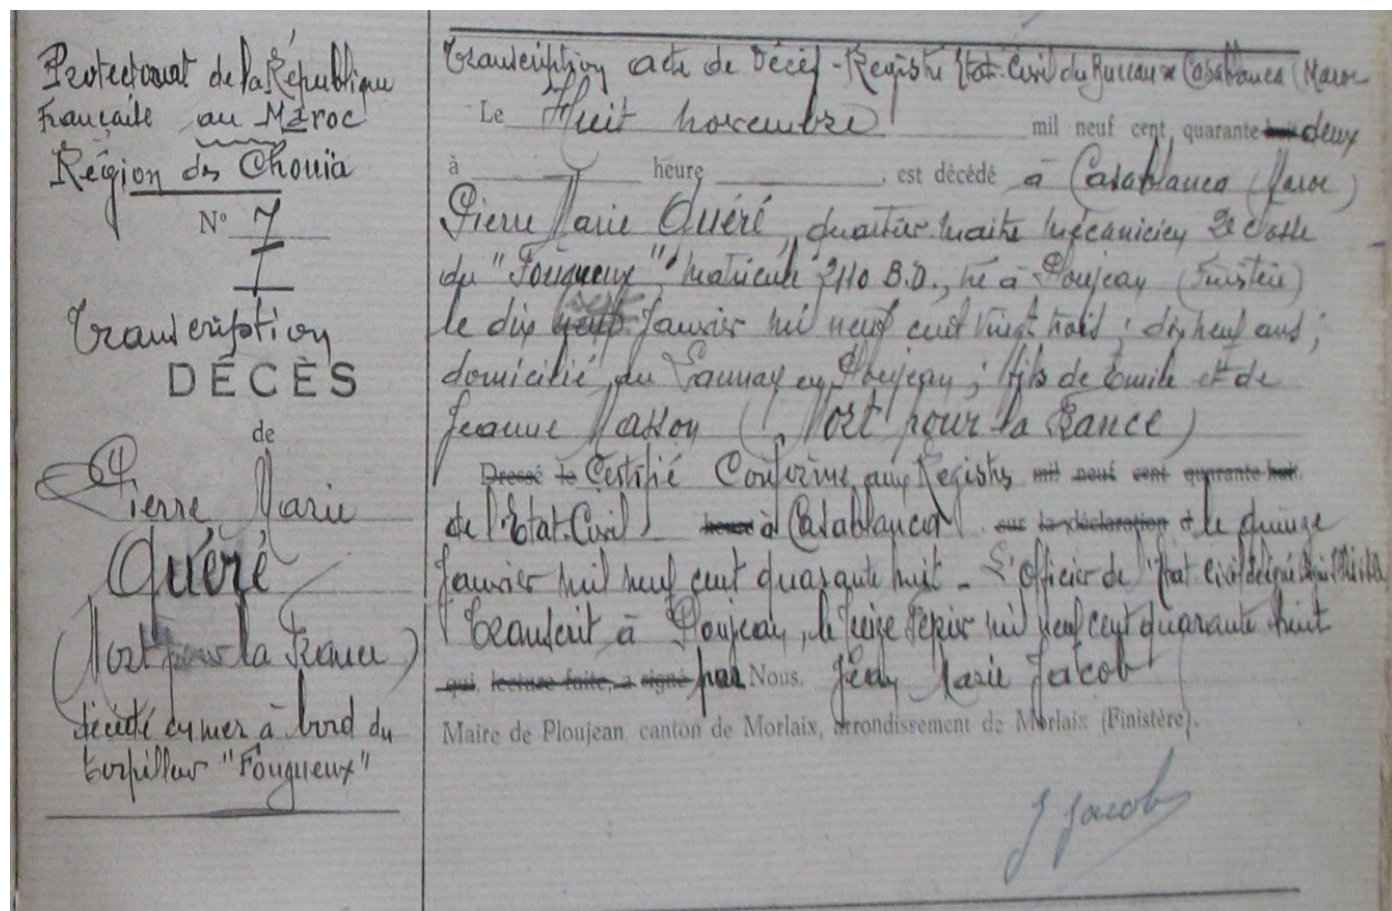 Protectorat de la République
Française au Maroc
Région des Chouïa
N° 7
7
Transcription
DÉCÈS
de
Pierre Marie
Quéré
(Mort pour la France)
décédé en mer à bord du
torpilleur "Fougueux"
Transcription acte de Décès - Registre Etat-Civil du Bureau de Casablanca (Maroc
Le Huit novembre mil neuf cent quarante huit deux
à heure , est décédé à Casablanca (Maroc)
Pierre Marie Quéré, quartier-maître mécanicien 2e classe
du "Fougueux", matricule 2110 B.D., né à Ploujean (Finistère)
le dix neuf Janvier mil neuf cent vingt trois ; dix neuf ans ;
domicilié au Launay en Ploujean ; fils de Emile et de
Jeanne Masson (Mort pour la France)
Dressé le Certifié Conforme aux Registres mil neuf cent quarante huit.
de l'Etat-Civil heure à Casablanca sur la déclaration d le quinze
Janvier mil neuf cent quarante huit - L'Officier de l'Etat Civil délégué
Transcrit à Ploujean, le mil neuf cent quarante huit
qui, lecture faite, a signé par Nous. Jean Marie Jacob
Maire de Ploujean canton de Morlaix, arrondissement de Morlaix (Finistère).
J Jacob